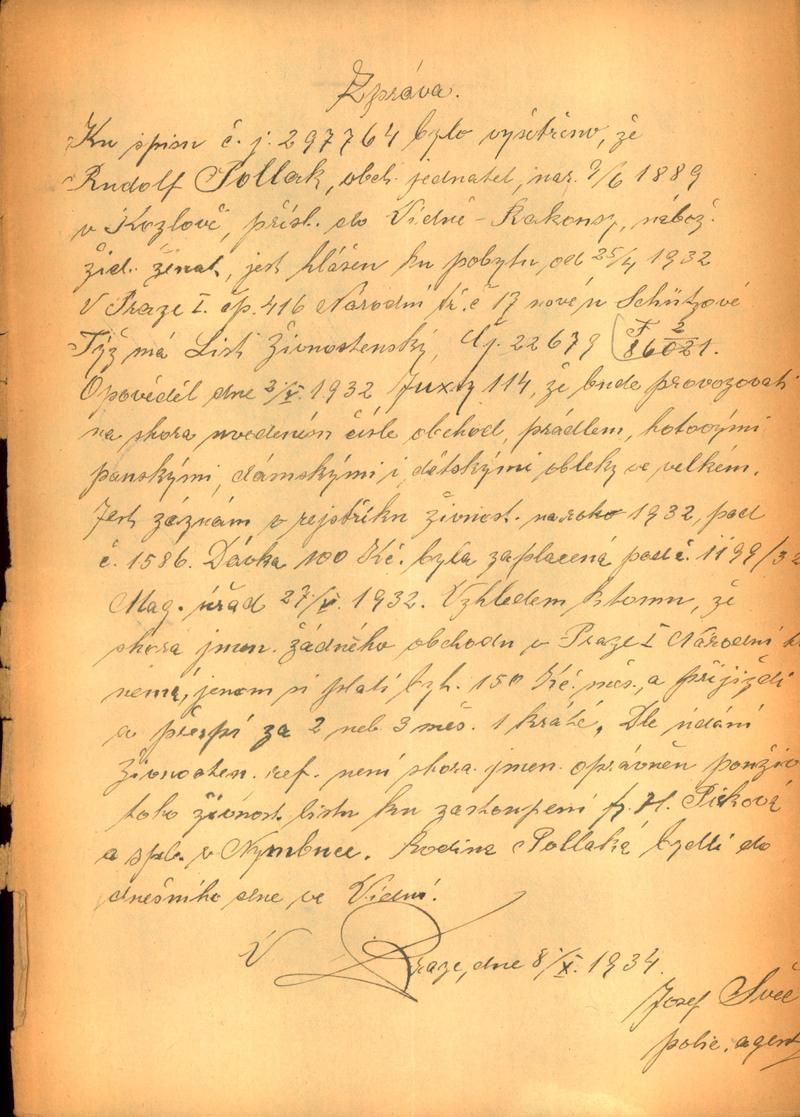 Zpráva.
Ku spisu č. j. 297764 bylo vyšetřeno, že
Rudolf Pollak, obch. jednatel, nar. 9/6 1889
v Kozlově, přísl. do Vídně - Rakousy, nábož.
žid. ženat, jest hlášen ku pobytu od 25/4 1932
V Praze I. čp. 416 Národní tř. č 17 nové u Schützové
Týž má List Živnostenský, čj. 22679 (F 2/86021.
Opověděl dne 2/V. 1932 114, že bude provozovati
na shora uvedeném čísle obchod, prádlem, hotovými
panskými, dámskými i dětskými obleky ve velkém.
Jest záznam v rejstříku živnost. na rok 1932, pod
č. 1586. Dávka 100 Kč. byla zaplacená pod č. 1199/32
Mag. úřad 27/V. 1932. Vzhledem k tomu, že
shora jmen. žádného obchodu v Praze I Národní
nemá, jenom si platí byt. 150 Kč. měs., a přijíždí
a přespí za 2 neb 3 měs. 1 kráté. Dle údání
Živnosten. ref. není shora jmen. oprávněn
toho živnost. listu ku zastoupení fy. H. Picková
a spol. v Nymburce. Rodina Pollaká bydlí do
dnešního dne ve Vídni.
V Praze, dne 8/X. 1934.
Josef Švec
polic. agent